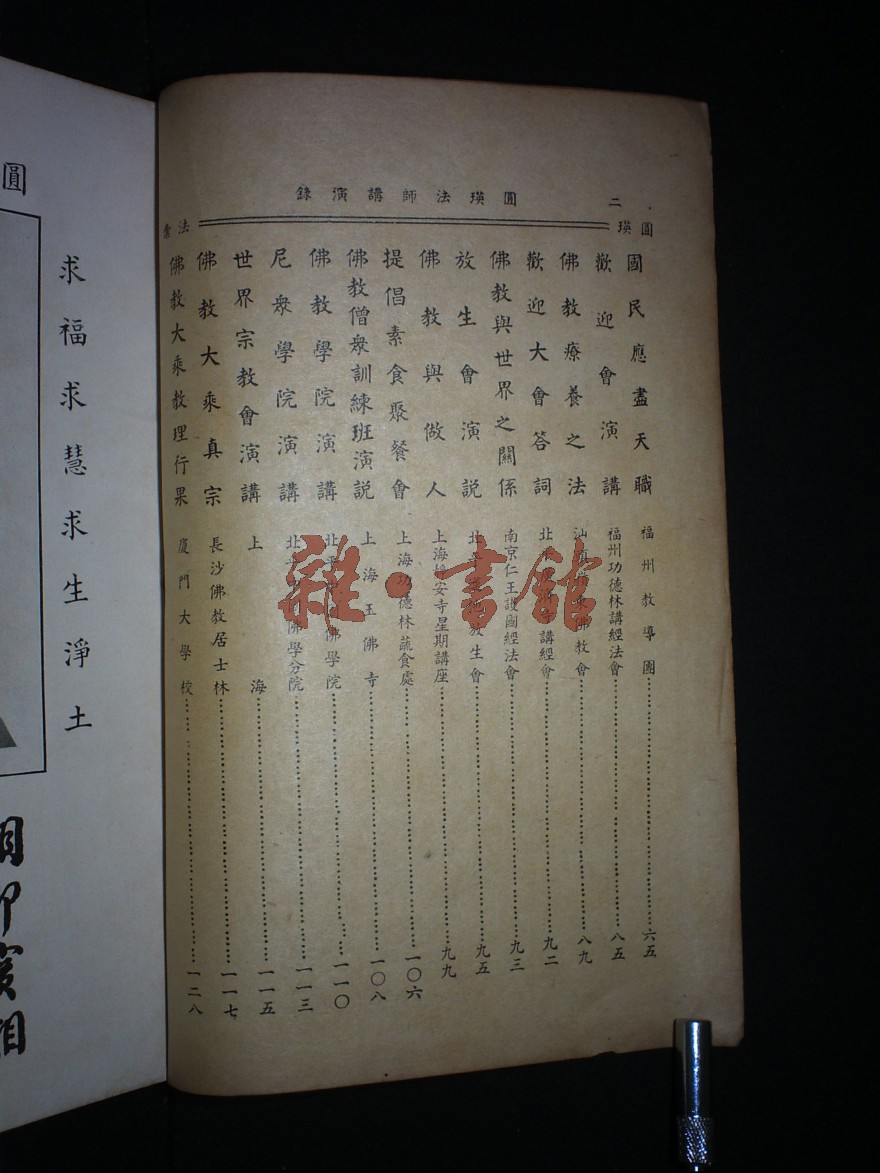 圓瑛法師講演錄
二
圓瑛
國民應盡天職 福州教導團 六五
歡迎會演講 福州功德林講經法會 八五
佛教療養之法 汕頭 佛教會 八九
歡迎大會答詞 北 講經會 九二
佛教與世界之關係 南京仁王護國經法會 九三
放生會演說 北平 放生會 九五
佛教與做人 上海靜安寺星期講座 九九
提倡素食聚餐會 上海功德林蔬食處 一〇六
佛教僧衆訓練班演說 上海玉佛寺 一〇八
佛教學院演講 北平 佛學院 一一〇
尼衆學院演講 北平 佛學分院 一一三
世界宗教會演講 上海 一一五
佛教大乘真宗 長沙佛教居士林 一一七
佛教大乘教理行果 廈門大學校 一二八
法
圓
求福求慧求生淨土
雜·書館